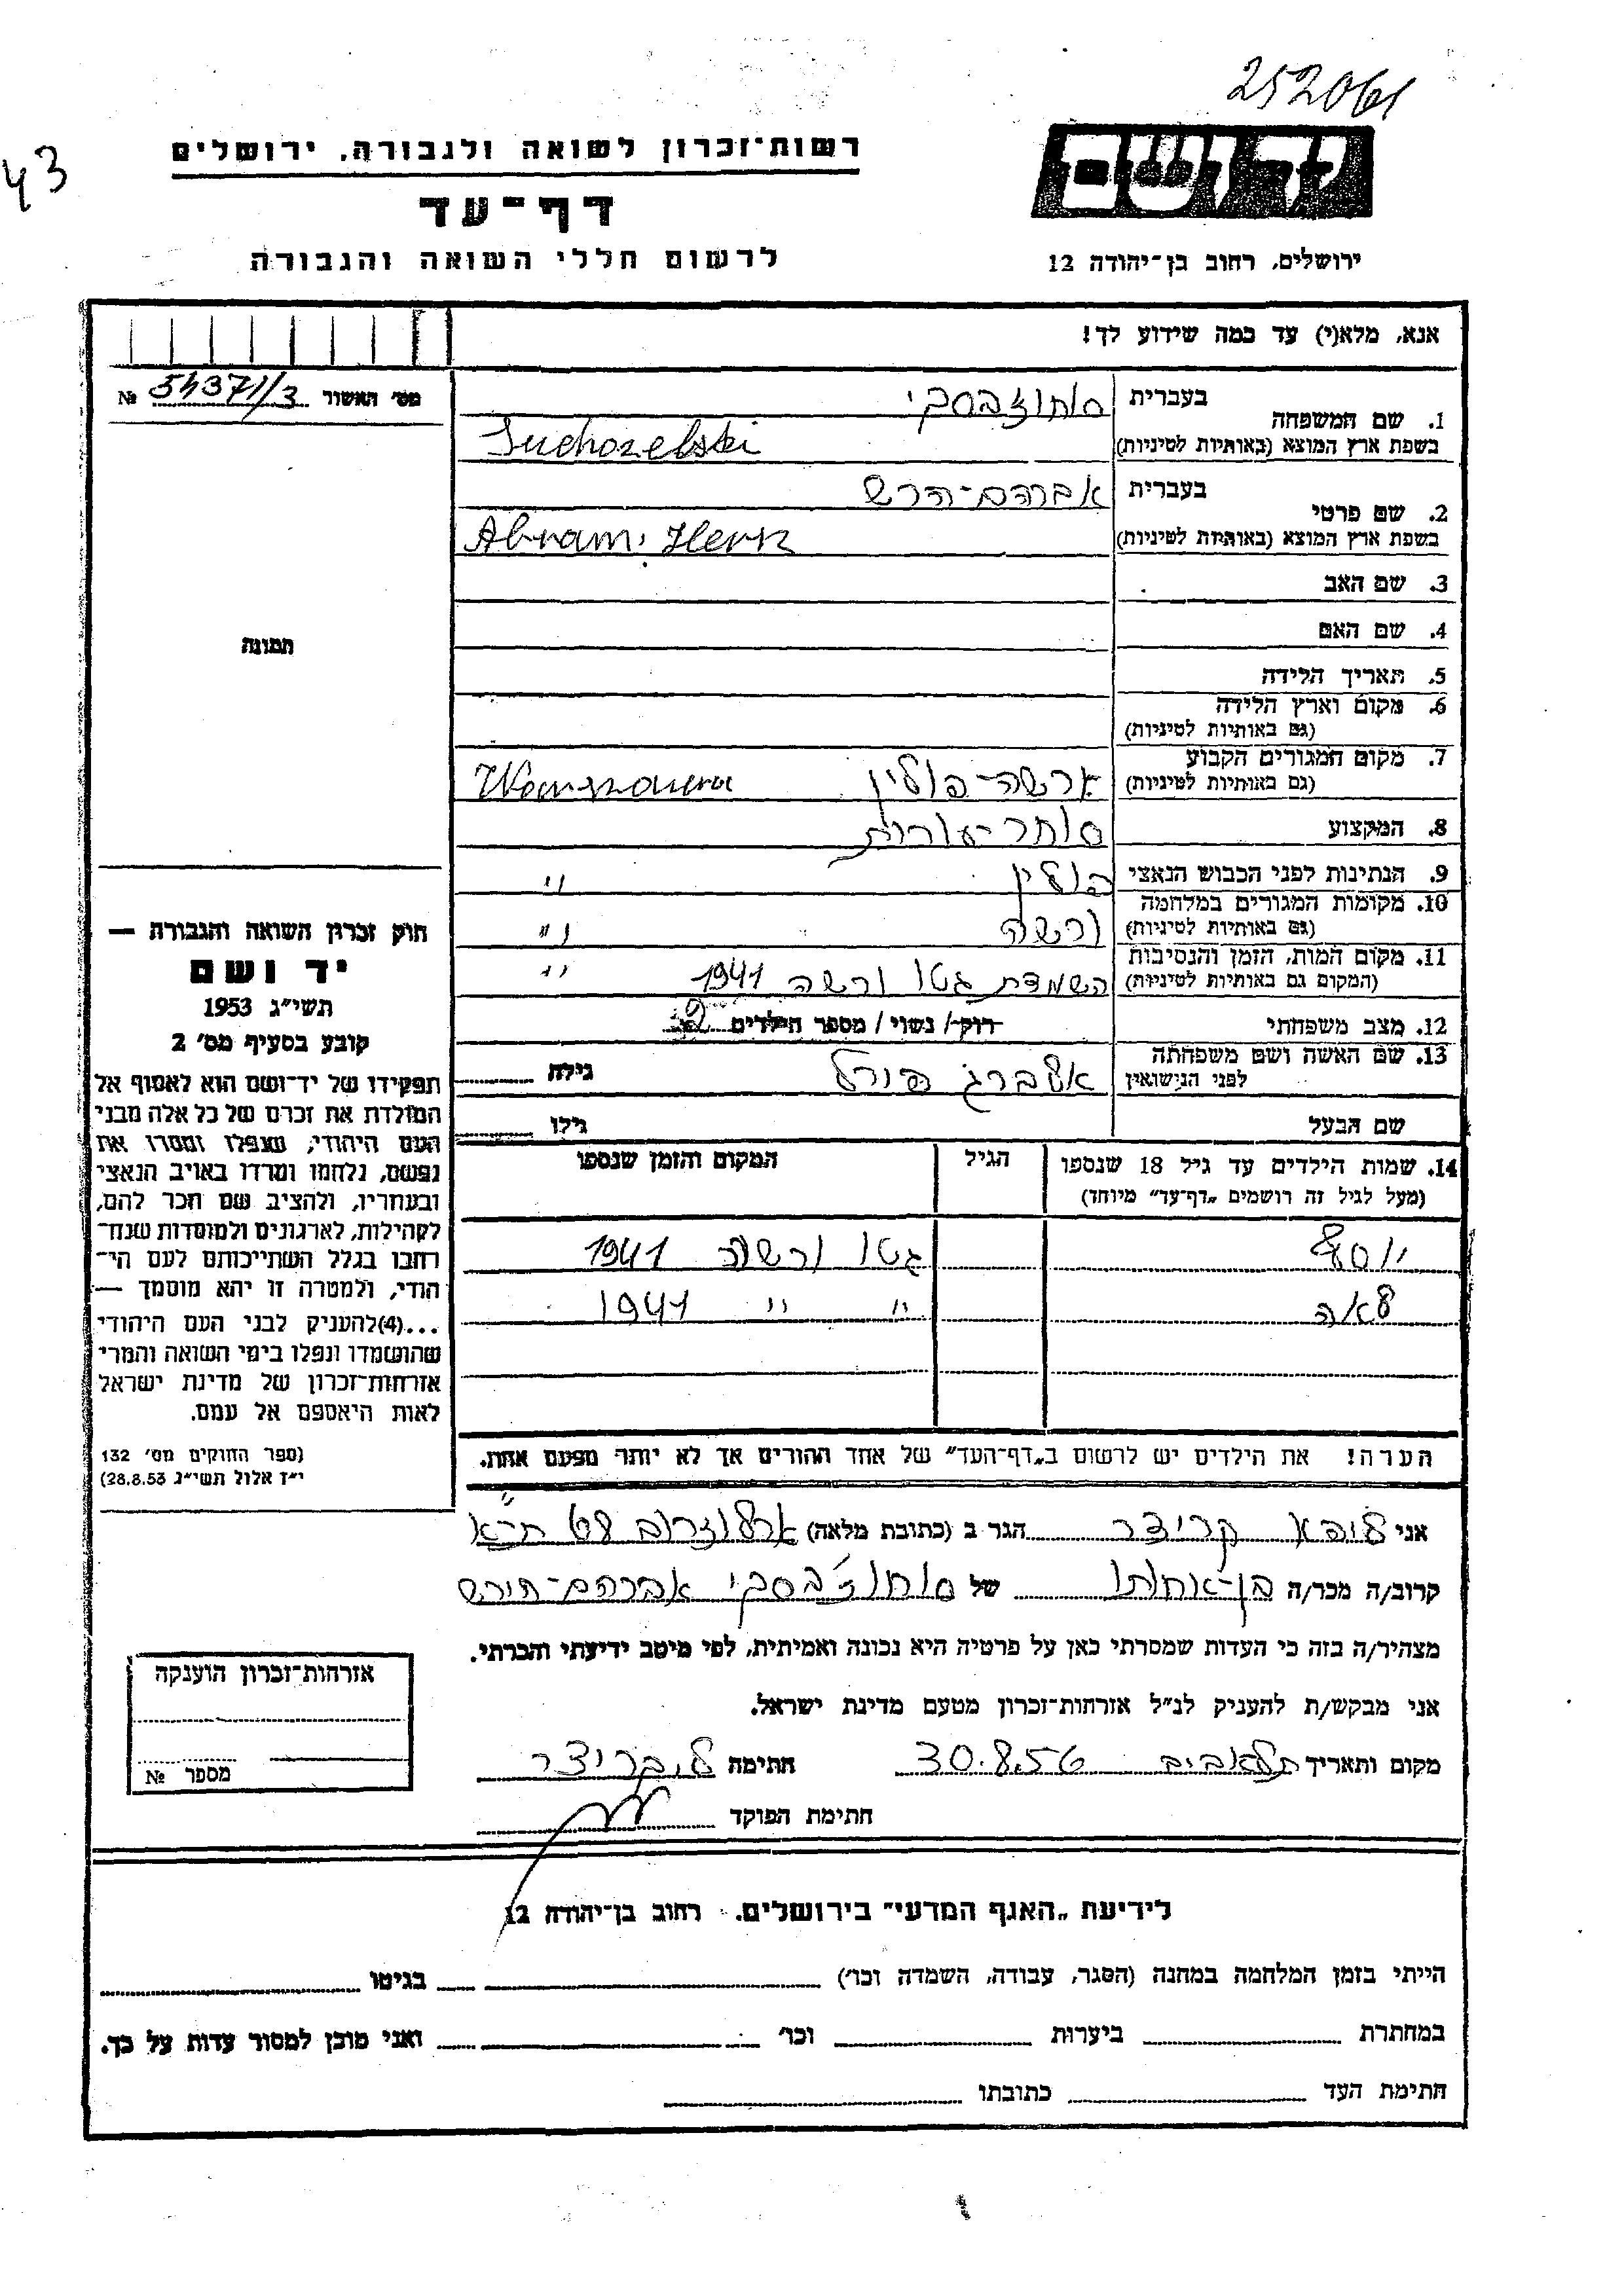 252061
43
רשות-זכרון לשואה ולגבורה, ירושלים
דף-עד
לרשום חללי השואה והגבורה
יד ושם
ירושלים, רחוב בן-יהודה 12
אנא, מלא(י) עד כמה שידוע לך!
מס' האשור 54371/3 №
תמונה
1. שם המשפחה בעברית סוחוז'בסקי
בשפת ארץ המוצא (באותיות לטיניות) Suchozebski
2. שם פרטי בעברית אברהם-הרש
בשפת ארץ המוצא (באותיות לטיניות) Abram. Hersz
3. שם האב
4. שם האם
5. תאריך הלידה
6. מקום וארץ הלידה
(גם באותיות לטיניות)
7. מקום המגורים הקבוע ורשה-פולין Warszawa
(גם באותיות לטיניות)
8. המקצוע סוחר-עורות
9. הנתינות לפני הכבוש הנאצי פולין "
10. מקומות המגורים במלחמה ורשה "
(גם באותיות לטיניות)
11. מקום המות, הזמן והנסיבות השמדת גטו ורשה 1941 "
(המקום גם באותיות לטיניות)
12. מצב משפחתי רווק / נשוי / מספר הילדים 2
13. שם האשה ושם משפחתה פורל גילה
לפני הנישואין
שם הבעל גילו
14. שמות הילדים עד גיל 18 שנספו הגיל המקום והזמן שנספו
(מעל לגיל זה רושמים „דף-עד" מיוחד)
יוסף גטו ורשה 1941
לאה " " 1941
הערה! את הילדים יש לרשום ב„דף-העד" של אחד ההורים אך לא יותר מפעם אחת.
חוק זכרון השואה והגבורה —
יד ושם
תשי"ג 1953
קובע בסעיף מס' 2
תפקידו של יד-ושם הוא לאסוף אל
המולדת את זכרם של כל אלה מבני
העם היהודי, שנפלו ומסרו את
נפשם, נלחמו ומרדו באויב הנאצי
ובעוזריו, ולהציב שם וזכר להם,
לקהילות, לארגונים ולמוסדות שנח-
רבו בגלל השתייכותם לעם הי-
הודי, ולמטרה זו יהא מוסמך —
...(4)להעניק לבני העם היהודי
שהושמדו ונפלו בימי השואה והמרי
אזרחות-זכרון של מדינת ישראל
לאות היאספם אל עמם.
(ספר החוקים מס' 132
י"ז אלול תשי"ג 28.8.53)
אני ליבא קריצר הגר ב (כתובת מלאה) ארלוזרוב ת"א
קרוב/ה מכר/ה בן-אחותו של סוחוז'בסקי אברהם-הירש
מצהיר/ה בזה כי העדות שמסרתי כאן על פרטיה היא נכונה ואמיתית, לפי מיטב ידיעתי והכרתי.
אני מבקש/ת להעניק לנ"ל אזרחות-זכרון מטעם מדינת ישראל.
מקום ותאריך תל אביב 30.8.56 חתימה ל. קריצר
חתימת הפוקד
אזרחות-זכרון הוענקה
מספר №
לידיעת „האגף המדעי" בירושלים. רחוב בן-יהודה 12
הייתי בזמן המלחמה במחנה (הסגר, עבודה, השמדה וכו') בגיטו
במחתרת ביערות וכו' ואני מוכן למסור עדות על כך.
חתימת העד כתובתו